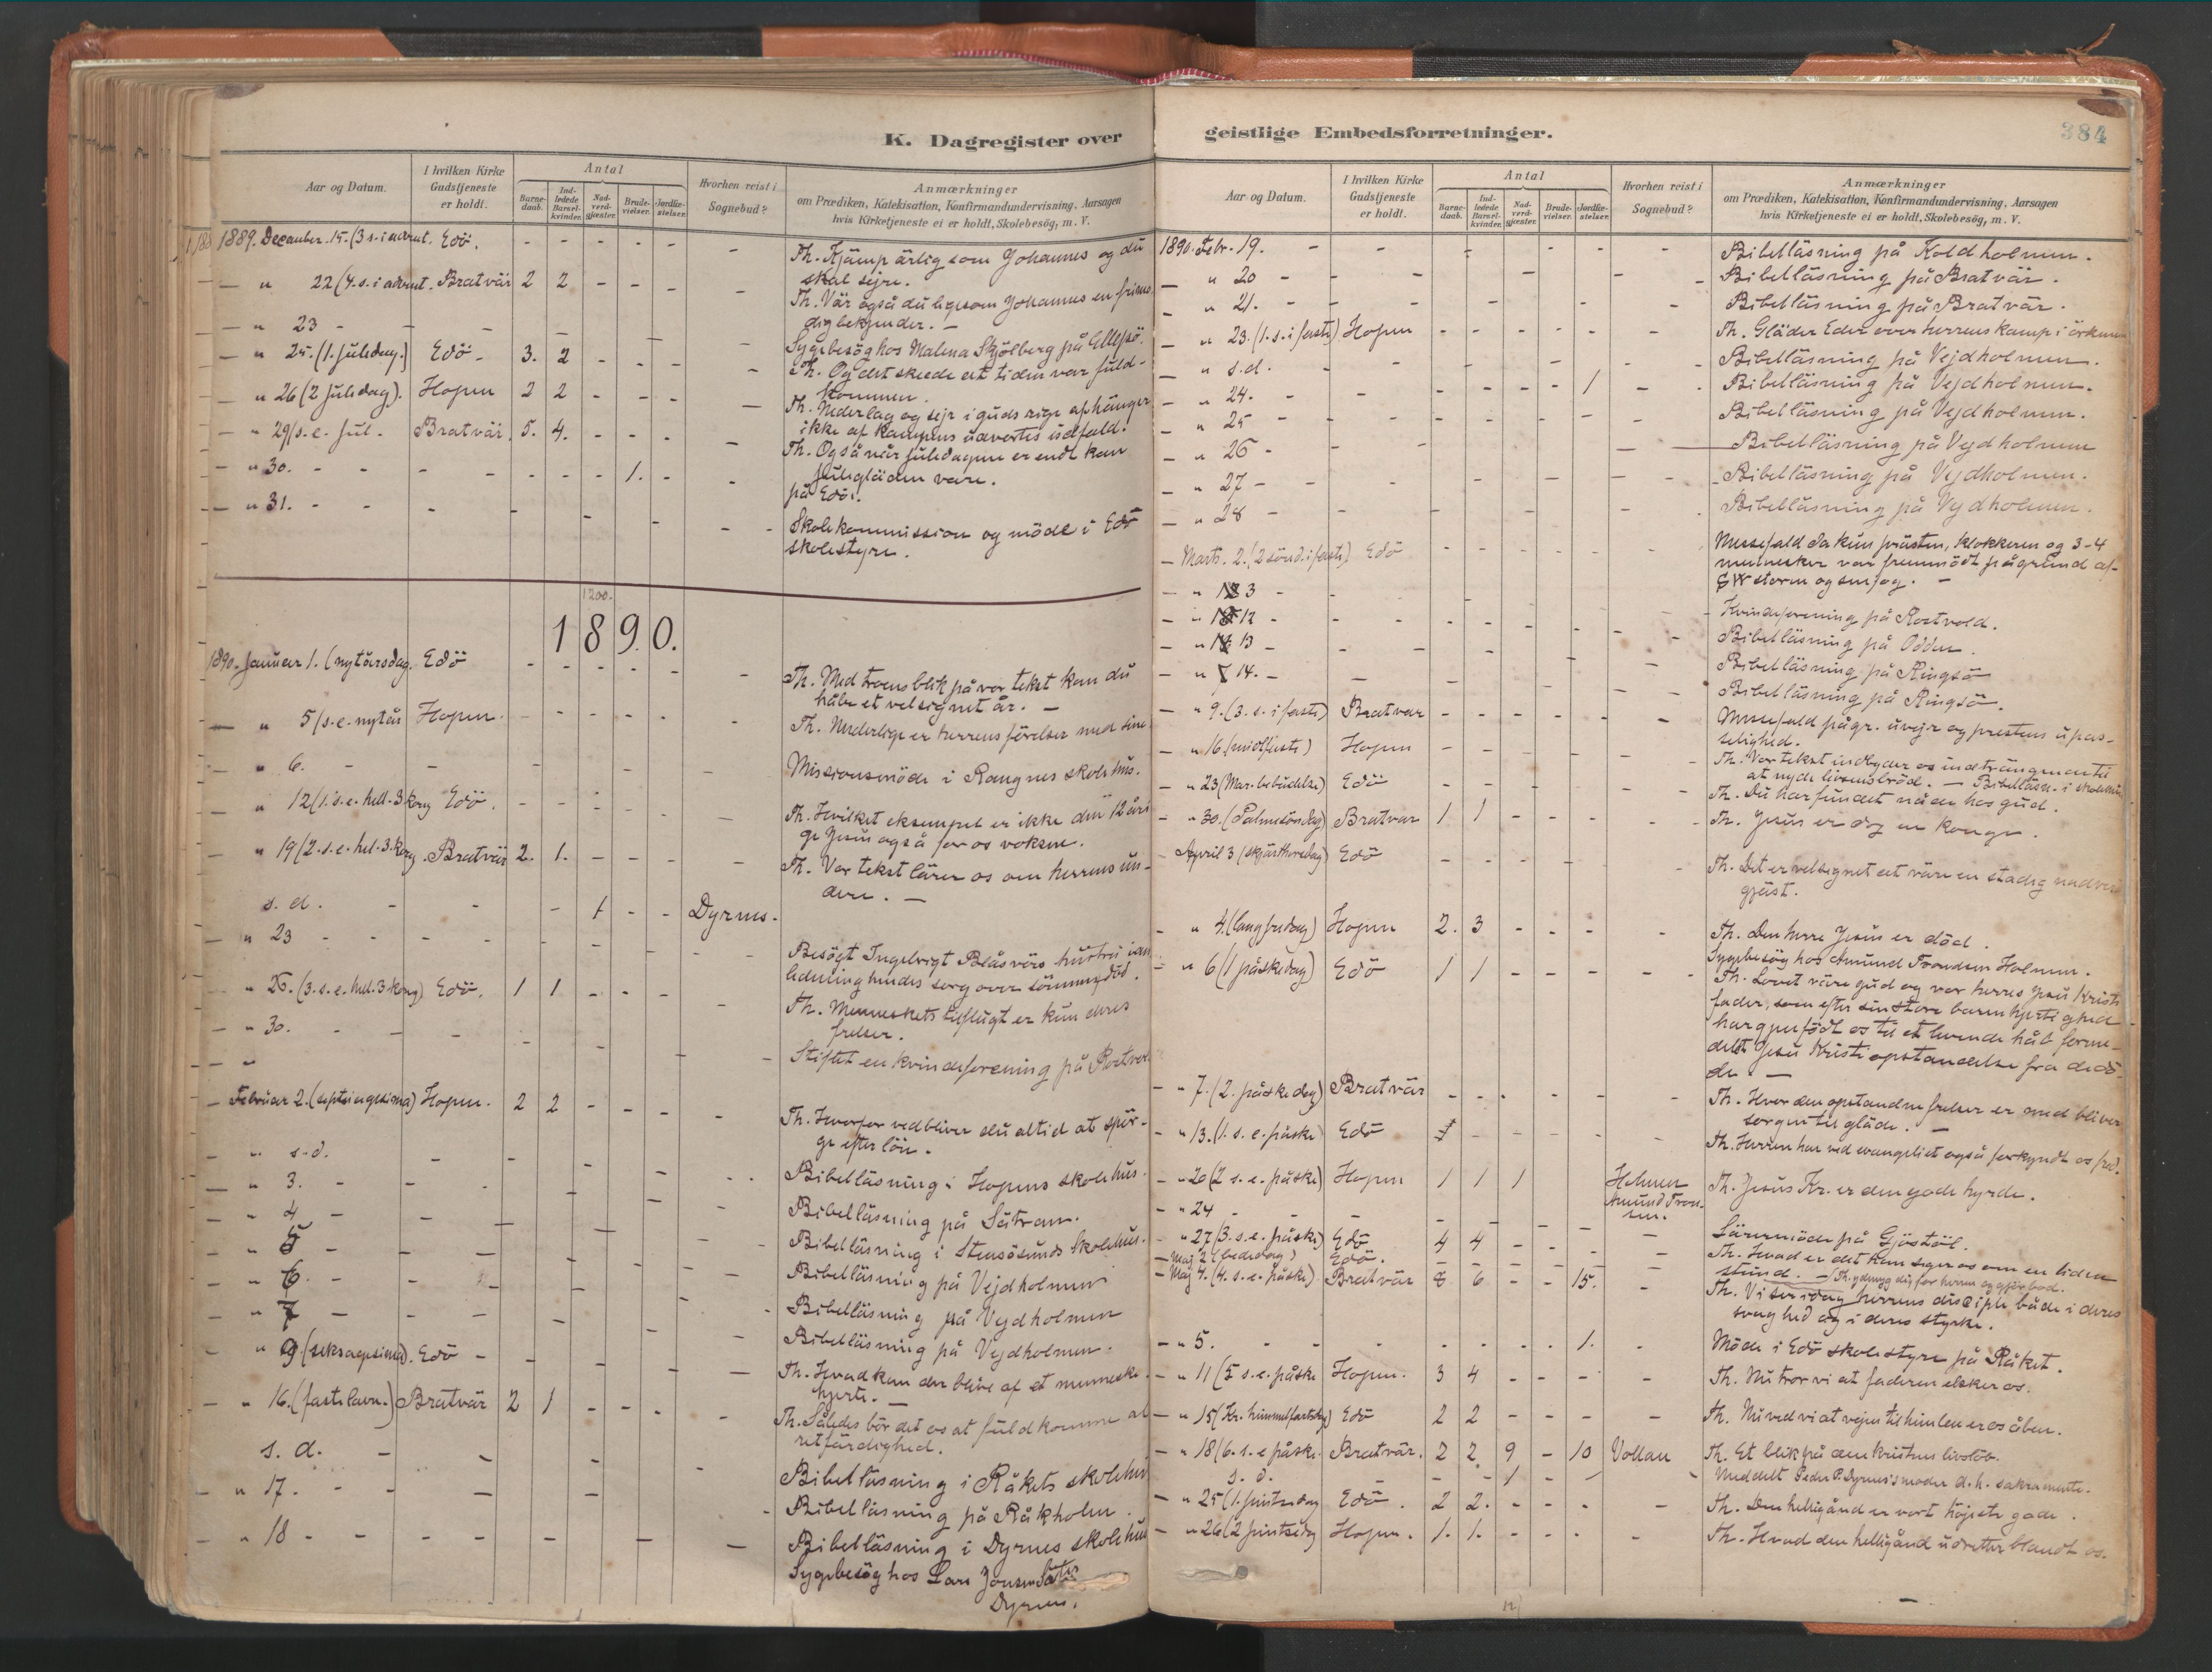 K. Dagregister over
Aar og Datum.
I hvilken Kirke Gudstjeneste er holdt.
Antal
Barne-daab.
Ind-ledede Barsel-kvinder.
Nad-verd-gjæster.
Brude-vielser.
Jordfæ-stelser.
Hvorhen reist i Sognebud?
Anmærkninger
om Prædiken, Katekisation, Konfirmandundervisning, Aarsagen
hvis Kirketjeneste ei er holdt, Skolebesøg, m. V.
1889. December. 15. (3 s. i advent. Edö. - - - - - - Th. Kjämp ärlig som Johannes og du
skal sejre.
— " 22 (4. s. i advent. Bratvär 2 2 - - - - Th. Vär også du ligesom Johannes en frimo-
dig bekjender. —
— " 23 - - - - Sygebesög hos Malena Skjölberg på Ellefsö.
— " 25. (1. juledag.) Edö - 3. 2 - - - - Th. Og det skede at tiden var fuld-
kommen.
— " 26 (2 juledag). Hopen 2 2 - - - - Th. Nederlag og sejr i guds rige afhänger
ikke af kampens udvortes udfald.
- " 29 (s. e. jul. - Bratvär. 5. 4. - - - - Th. Også når juledagene er endt kan
juleglæden vare.
- " 30. - - - - - - 1. - - på Edö.
- " 31. - - - - - - - - Skolekommission og möde i Edö
skolestyre.
1200.
1890.
1890. Januar 1. (nytårsdag. Edö - - - - - - Th. Med troens blik på vor tekst kan du
håbe et velsignet år. —
— " 5 (s. e. nytår Hopen. - - - - - - Th. Underlige er herrens förelser med sine
- " 6. - - - - - Missionsmöde i Rangnes skolehus.
" 12 (1. s. e. hell. 3 kong Edö. - - - - - - Th. Hvilket eksempel er ikke den 12 åri-
ge Jesus også for os voksne.
" 19 (2. s. e. hel. 3. kong. Bratvär 2. 1. - - - - Th. Vor tekst lärer os om herrens un-
dere. —
s. d. - - - 1 - - Dyrnes.
— " 23 - - - - - - - - Besögt Ingebrigt Blåsvärs hustru i an-
ledning hendes sorg over sönnens död.
- " 26. (3. s. e. hel. 3 kong) Edö. 1 1 - - - - Th. Menneskets tilflugt er kun deres
frelser.
- " 30. - - - - - - - Stiftet en kvindeforening på Rostvol
- Februar 2. (septuagesima) Hopen. 2 2 - - - - Th. Hvorfor vedbliver du altid at spör-
ge efter lön.
- " s. d. - - - - - - Bibelläsning i Hopens skolehus.
- " 3. - - - - - - Bibelläsning på Sätran.
- " 4 - - - - - - Bibelläsning i Stensösunds skolehus.
- " 5 - - - - - - Bibelläsning på Vejdholmen
- " 6. - - - - - - Bibelläsning på Vejdholmen
- " 7 - - - - - - Bibelläsning på Vejdholmen.
" 9 (seksagesima). Edö - - - - - - Th. Hvad kan der blive af et menneske-
hjerte. —
- " 16. (fastelavn.) Bratvär 2 1 - - - - Th. Således bör det os at fuldkomme al
retfärdighed.
s. d. - - - - - Bibelläsning i Råkets skolehus
- " 17. - - - - - Bibelläsning på Råkholm.
- " 18 - - - - - - Bibelläsning i Dyrnes skolehus
Sygebesög hos Lars Jonsen
Dyrnes.
geistlige Embedsforretninger.
384
Aar og Datum.
I hvilken Kirke Gudstjeneste er holdt.
Antal
Barne-daab.
Ind-ledede Barsel-kvinder.
Nad-verd-gjæster.
Brude-vielser.
Jordfæ-stelser.
Hvorhen reist i Sognebud?
Anmærkninger
om Prædiken, Katekisation, Konfirmandundervisning, Aarsagen
hvis Kirketjeneste ei er holdt, Skolebesög, m. V.
1890. Febr. 19. - - - - - - Bibelläsning på Koldholmen.
— " 20 - - - - - - Bibelläsning på Bratvär.
- " 21. - - - - - - Bibelläsning på Bratvär.
- " 23. (1. s. i faste) Hopen - - - - - - Th. Gläder Eder over herrens kamp i örkenen
- " s. d. - - - - - Bibelläsning på Vejdholmen.
- " 24. - - - - - - 1 - - Bibelläsning på Vejdholmen.
- " 25 - - - - - - Bibelläsning på Vejdholmen.
- " 26 - - - - - Bibelläsning på Vejdholmen
- " 27 - - - - - - Bibelläsning på Vejdholmen.
- " 28 - - - - - Bibelläsning på Vejdholmen.
- Marts. 2. (2 sönd. i faste) Edö - - - - - - Messefald da kun prästen, klokkeren og 3-4
mennesker var fremmödt på grund af
SW storm og snefog. —
- " 3 - - - - - Kvindeforening på Rostvold.
- " 12 - - - - - Bibelläsning på Odden.
- " 13 - - - - - Bibelläsning på Ringsö
- " 14. - - - - - Bibelläsning på Ringsö.
- " 9. (3. s. i faste) Bratvär - - - - - - Messefald på gr. uvejr og prestens upas-
selighed.
- " 16. (midfaste) Hopen - - - - - - Th. Vor tekst indbyder os indträngende til
at nyde livsens bröd. — Bibelläsn. i skolehus
- " 23 (Mar. bebudelse) Edö - - - - - - Th. Du har fundet nåde hos gud.
- " 30. (Palmesöndag) Bratvär 1 1 - - - - Th. Jesus er dog en konge.
- April 3 (skjärthorsdag) Edö - - - - - - Th. Det er velsignet at väre en stadig nadver-
gjäst.
- " 4. (langfredag) Hopen 2. 3 - - - - Th. Den herre Jesus er död.
Sygebesög hos Amund Trondsen Holmen.
- " 6 (1 påskedag) Edö 1 1 - - - - Th. Lovet väre gud og vor herres Jesu Kristi
fader, som efter sin store barmhjertighed
har gjenfödt os til et levende håb forme-
delst Jesu Kristi opstandelse fra dedö-
de. —
- " 7. (2. påskedag) Bratvär - - - - - - Th. Hvor den opstandne frelser er med bliver
sorgen til gläde. —
- " 13. (1. s. e. påske) Edö - - - - - Th. Herren har ved evangeliet også forkyndt os fred.
- " 20 (2 s. e. påske) Hopen 1 1 1 Holmen Th. Jesus Kr. er den gode hyrde.
Amund Tron-
sen.
- " 24 - - - - - - Lärermöde på Gjöstöl.
- " 27 (3. s. e. påske) Edö 4 4 - - - - Th. Hvad er det han siger os om en liden
stund. —
- Maj 2 (bededag) Edö. - - - - - - Th. ydmyg dig for herren og gjör bod.
- Maj 4. (4. s. e. påske). Bratvär 8 6 - - 15. - Th. Vi ser idag herrens disciple både i deres
svaghed og i deres styrke.
- " 5. - - - - - - 1. - Möde i Edö skolestyre på Råket.
- " 11 (5 s. e. påske Hopen. 3 4 - - - - Th. Nu tror vi at faderen elsker os.
- " 15 (Kr. himmelfartsdag) Edö 2 2 - - - - Th. Nu ved vi at vejen til himlen er os åben.
- " 18 (6. s. e påske. Bratvär. 2 2 9 - 10 Vollan Th. Et blik på den kristnes livslöb.
s. d. - - 1 - - - Meddelt Peder P. Dyrnes's moder d. h. sakramente.
- " 25 (1. pintsedag Edö. 2 2. - - - - Th. Den helligånd er vort höjeste gode.
- " 26 (2 pintsedg Hopen. 1. 1. - - - - Th. Hvad den helligånd udretter blandt os.